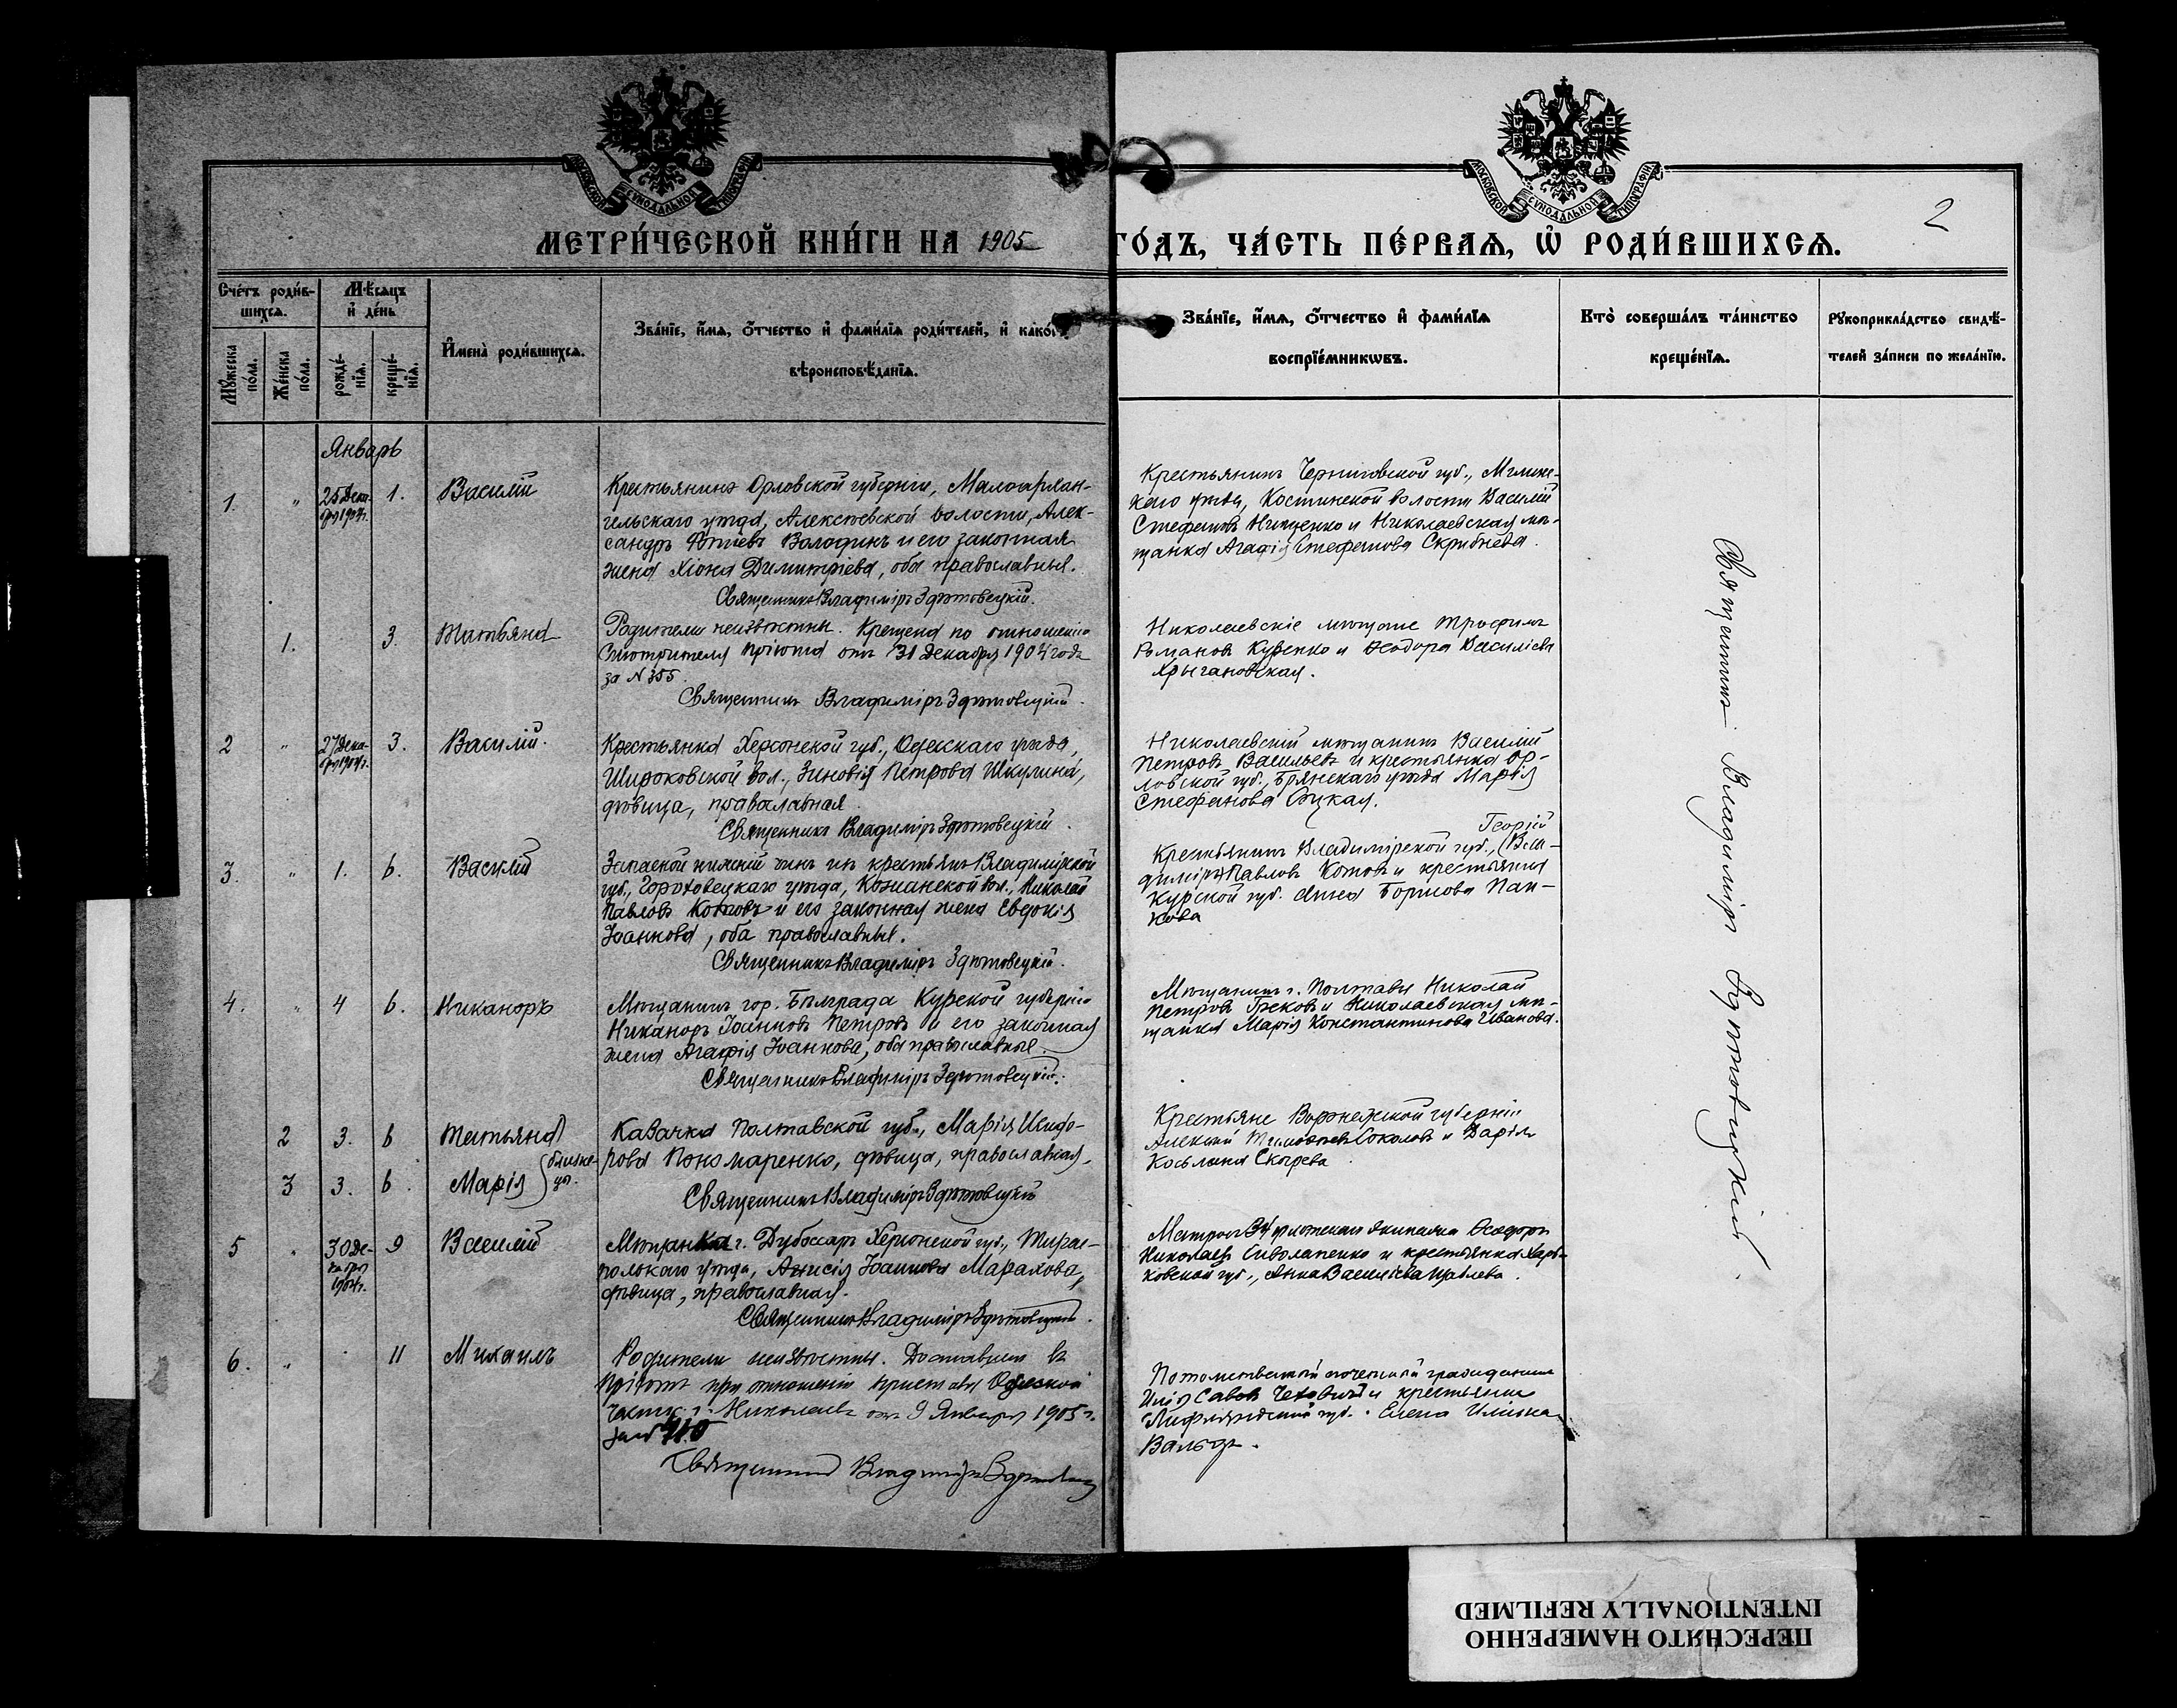 МОСКОВСКОЙ СУНОДАЛЬНОЙ ТИПОГРАФІИ
МОСКОВСКОЙ СУНОДАЛЬНОЙ ТИПОГРАФІИ
2
МЕТРИ́ЧЕСКОЙ КНИ́ГИ НА 1905
ГО́ДЪ, ЧА́СТЬ ПЕ́РВАЯ, Ѡ҆ РОДИ́ВШИХСЯ.
Сче́тъ роди́в-
шихся.
Мꙋ́жеска
по́ла.
Же́нска
по́ла.
Мѣ́сяцъ
и҆ де́нь
рожде́-
нїя.
креще́-
нїя.
И҆мена̀ роди́вшихся.
Зва́нїе, и҆́мя, о҆́тчество и҆ фами́лїя роди́телей, и҆ како́г
вѣроисповѣ́данїя.
Зва́нїе, и҆́мя, о҆́тчество и҆ фами́лїя
воспрїе́мникѡвъ.
Кто̀ соверша́лъ та́инство
креще́нїя.
Рꙋкоприкла́дство свидѣ́-
телей за́писи по жела́нїю.
Январь
1. " 25 Дека- 1. Василій
бря 1904 г.
Крестьянинъ Орловской губерніи, Малоархан-
гельскаго уѣзда, Алексѣевской волости, Алек-
сандръ Фотіевъ Володинъ и его законная
жена Хіона Димитріева, оба православные.
Священникъ Владиміръ Здѣтовецкій.
Крестьянинъ Черниговской губ., Мглинс-
каго уѣзда, Костинской волости Василій
Стефановъ Нищенко и Николаевская мѣ-
щанка Агафія Стефанова Скрибнева.
1. 3. Татьяна
Родители неизвѣстны. Крещена по отношенію
Смотрителя пріюта отъ 31 декабря 1904 года
за № 355.
Священникъ Владиміръ Здѣтовецкій.
Николаевскіе мѣщане Трофимъ
Романовъ Куренко и Ѳеодора Василіева
Хрыгановская.
2 " 27 Дека- 3. Василій.
бря 1904 г.
Крестьянка Херсонской губ., Одесскаго уѣзда,
Широковской вол., Зиновія Петрова Шкулина,
дѣвица, православная.
Священникъ Владиміръ Здѣтовецкій.
Николаевскій мѣщанинъ Василій
Петровъ Васильевъ и крестьянка Ор-
ловской губ., Брянскаго уѣзда Марія
Стефанова Сыцкая.
3. " 1. 6. Василій
Запасной нижній чинъ изъ крестьянъ Владимірской
губ., Гороховецкаго уѣзда, Кожанской вол., Николай
Павловъ Котовъ и его законная жена Евдокія
Іоаннова, оба православные.
Священникъ Владиміръ Здѣтовецкій.
Георгій
Крестьянинъ Владимірской губ., (Вла-
диміръ) Павловъ Котовъ и крестьянка
Курской губ. Анна Борисова Пан-
кова
4. " 4 6. Никаноръ
Мѣщанинъ гор. Бѣлграда Курской губерніи
Никаноръ Іоанновъ Петровъ и его законная
жена Агафія Іоаннова, оба православные.
Священникъ Владиміръ Здѣтовецкій.
Мѣщанинъ г. Полтавы Николай
Петровъ Грековъ и Николаевская мѣ-
щанка Марія Константинова Иванова.
2 3. 6 Татьяна
3 3. 6. Марія } близне-
цы.
Казачка Полтавской губ., Марія Никифо-
рова Пономаренко, дѣвица, православная.
Священникъ Владиміръ Здѣтовецкій
Крестьяне Воронежской губерніи
Алексѣй Тимоѳеевъ Соколовъ и Дарія
Косьмина
5 " 30 Де- 9 Василій
кабря
1904 г.
Мѣщанка г. Дубоссаръ Херсонской губ., Тирас-
польскаго уѣзда, Анисія Іоаннова Марахова,
дѣвица, православная.
Священникъ Владиміръ Здѣтовецкій.
Матросъ 34 флотскаго экипажа Ѳеодоръ
Николаевъ Сиволапенко и крестьянка Харь-
ковской губ., Анна Василіева
6. " 11 Михаилъ
Родители неизвѣстны. Доставленъ въ
пріютъ при отношеніи пристава Одесской
части г. Николаева отъ 9 Января 1905 г.
за №
Священникъ Владиміръ Здѣтовецкій
Потомственный почетный гражданинъ
Илія Савовъ Чеховичъ и крестьянка
Лифляндской губ. Елена
Вальдъ.
Священникъ Владиміръ Здѣтовецкій.
ПЕРЕСНЯТО НАМЕРЕННО
INTENTIONALLY REFILMED